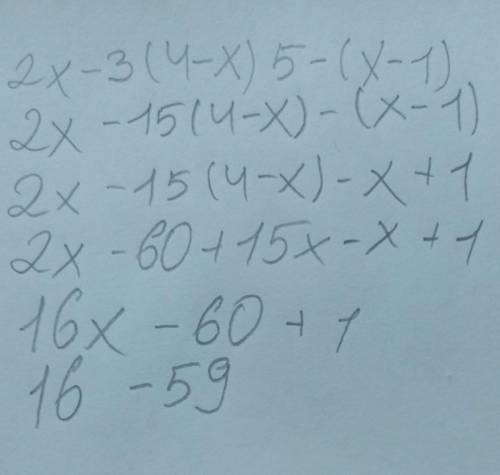 2x-3(4-x)5-(x-1)
2x -15(4-x)-(x-1)
2x -15(4-x)-x+1
2x -60+15x-x+1
16x -60+1
16 -59